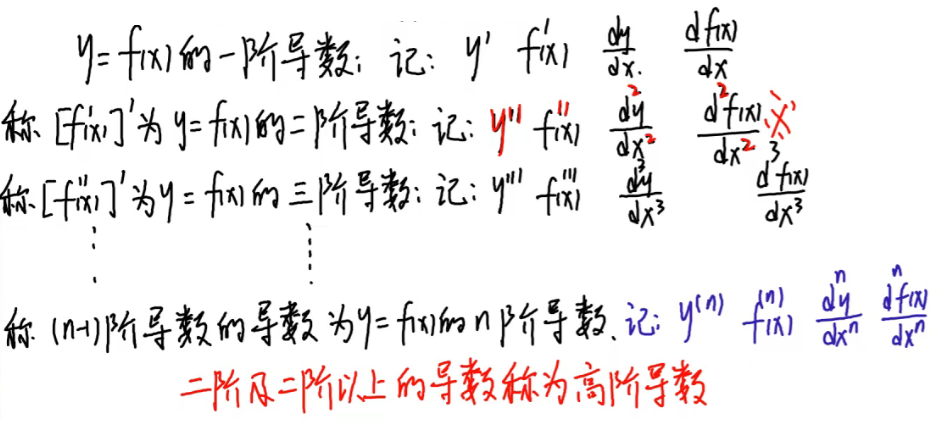 y=f(x)的一阶导数: 记: y' f'(x) dy/dx. df(x)/dx
称 [f'(x)]' 为 y=f(x)的二阶导数: 记: y''' f''(x) d²y/dx² d²f(x)/dx²
称 [f''(x)]' 为 y=f(x)的三阶导数: 记: y''' f'''(x) d³y/dx³ d³f(x)/dx³
称 (n-1)阶导数的导数为y=f(x)的n阶导数. 记: y⁽ⁿ⁾ f⁽ⁿ⁾(x) dⁿy/dxⁿ dⁿf(x)/dxⁿ
二阶及二阶以上的导数称为高阶导数